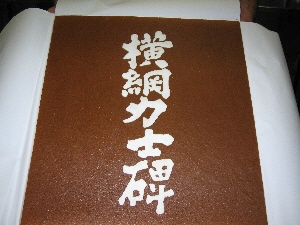 横綱力士碑